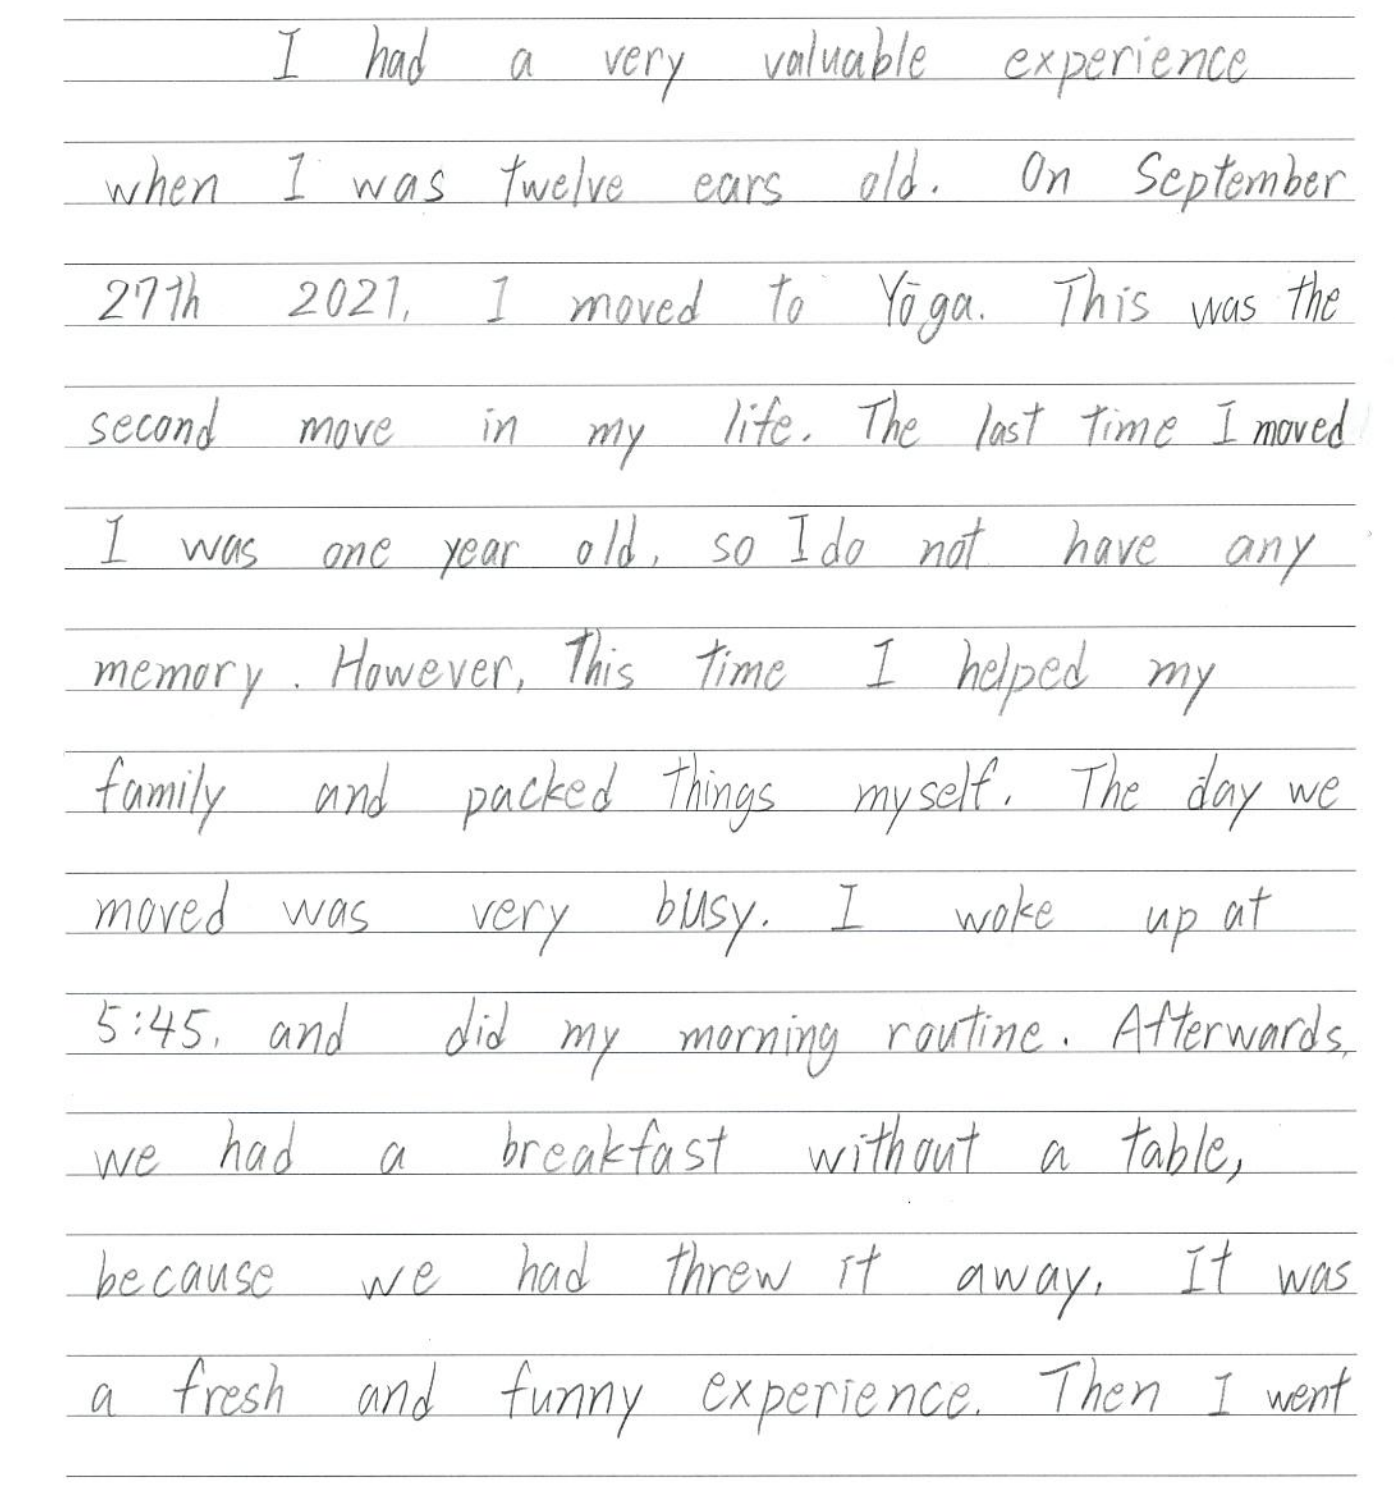 I had a very valuable experience
when I was twelve ears old. On September
27th 2021, I moved to Yōga. This was the
second move in my life. The last time I moved
I was one year old, so I do not have any
memory. However, This time I helped my
family and packed things myself. The day we
moved was very busy. I woke up at
5:45, and did my morning routine. Afterwards,
we had a breakfast without a table,
because we had threw it away. It was
a fresh and funny experience. Then I went